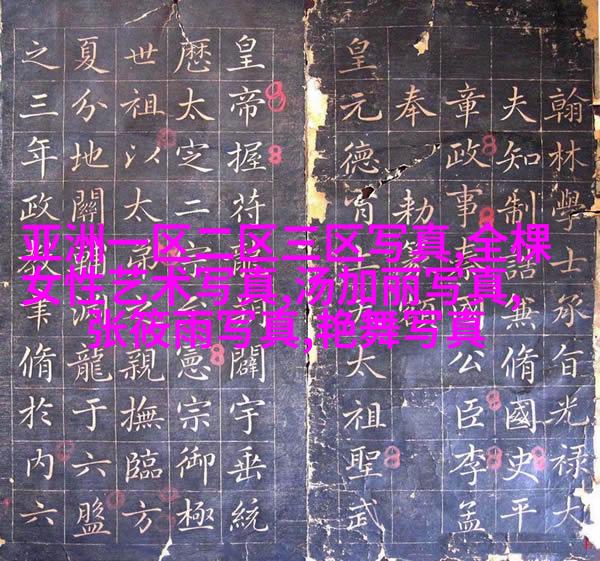 皇帝握符龍闢宇垂統
厯太定二宗憲宗御極
世祖以太弟親撫臨方
夏分地關龍于六盤
之三年政教聿脩於内六
翰林學士承旨光祿大
夫知制誥兼脩國史平
章政事秦國公臣李孟
奉勅篆
皇元德胄太祖聖武
亚洲一区二区三区写真,全棵
女性艺术写真,汤加丽写真,
张筱雨写真,艳舞写真